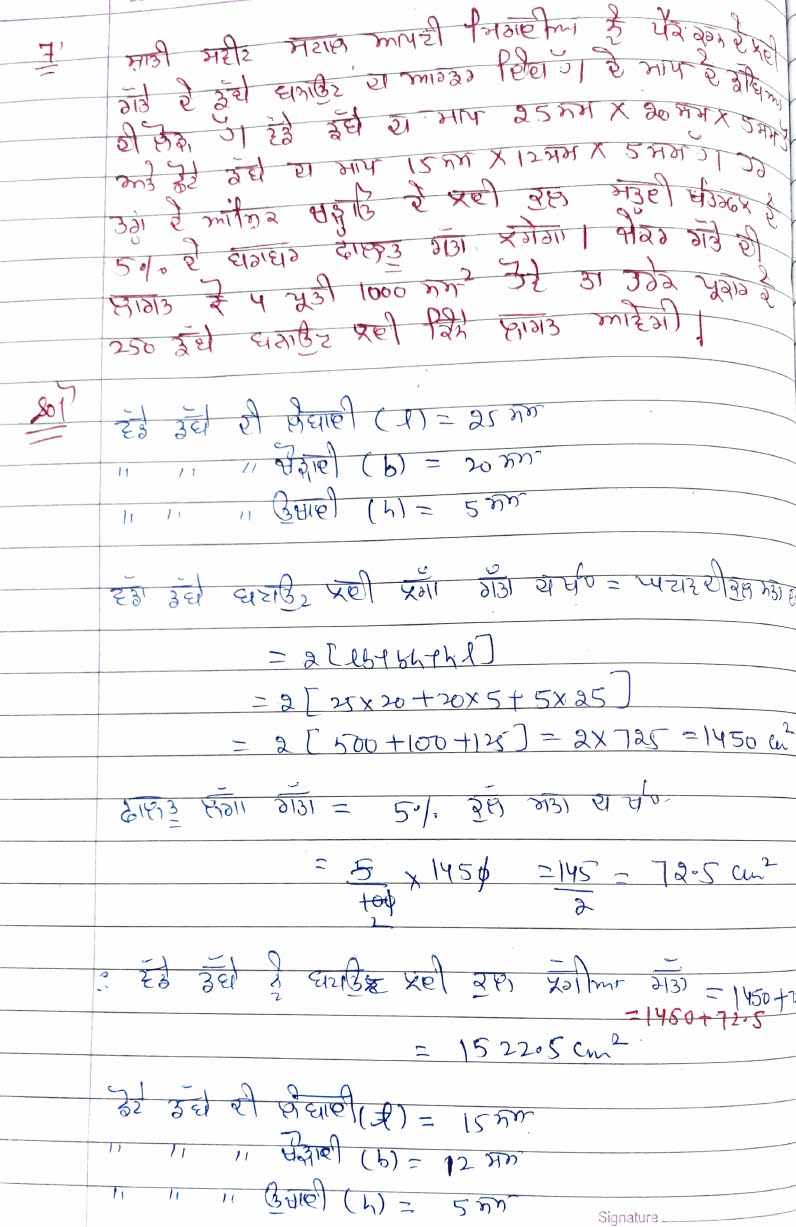 7. ਸ਼ਾਂਤੀ ਸਵੀਟ ਸਟਾਲ ਆਪਣੀ ਮਿਠਾਈਆਂ ਨੂੰ ਪੈਕ ਕਰਨ ਦੇ ਲਈ
ਗੱਤੇ ਦੇ ਡੱਬੇ ਬਨਾਉਣ ਦਾ ਆਰਡਰ ਦਿੱਤਾ। ਦੋ ਮਾਪ ਦੇ ਡੱਬਿਆਂ
ਦੀ ਲੋੜ ਹੈ। ਵੱਡੇ ਡੱਬੇ ਦਾ ਮਾਪ 25ਸਮ × 20ਸਮ × 5ਸਮ
ਅਤੇ ਛੋਟੇ ਡੱਬੇ ਦਾ ਮਾਪ 15ਸਮ × 12ਸਮ × 5ਸਮ ਹੈ।
ਦੇ ਲਈ ਕੁਲ ਸਤ੍ਹਈ ਖੇਤਰਫਲ ਦੇ
5% ਦੇ ਬਰਾਬਰ ਫਾਲਤੂ ਗੱਤਾ ਲਗੇਗਾ। ਜੇਕਰ ਗੱਤੇ ਦੀ
ਲਾਗਤ ਰੁ 4 ਪ੍ਰਤੀ 1000 ਸਮ² ਹੋਵੇ ਤਾਂ ਹਰੇਕ ਪ੍ਰਕਾਰ ਦੇ
250 ਡੱਬੇ ਬਨਾਉਣ ਲਈ ਕਿੰਨੀ ਲਾਗਤ ਆਵੇਗੀ।
Sol ਵੱਡੇ ਡੱਬੇ ਦੀ ਲੰਬਾਈ (l) = 25 ਸਮ
" " " ਚੌੜਾਈ (b) = 20 ਸਮ
" " " ਉਚਾਈ (h) = 5 ਸਮ
ਵੱਡਾ ਡੱਬੇ ਬਣਾਉਣ ਲਈ ਲੱਗਾ ਗੱਤਾ ਦਾ ਖੇ॰ =
= 2 [lb+bh+hl]
= 2 [25×20+20×5+5×25]
= 2 [500+100+125] = 2×725 = 1450 cm²
ਫਾਲਤੂ ਲੱਗਾ ਗੱਤਾ = 5% ਕੁਲ ਸਤਾ ਦਾ ਖੇ॰
= 5/100 × 1450 = 145/2 = 72.5 cm²
∴ ਵੱਡੇ ਡੱਬੇ ਨੂੰ ਬਣਾਉਣ ਲਈ ਕੁਲ ਲੱਗਿਆ ਗੱਤਾ = 1450+7
= 1450+72.5
= 1522.5 cm²
ਛੋਟੇ ਡੱਬੇ ਦੀ ਲੰਬਾਈ (l) = 15 ਸਮ
" " " ਚੌੜਾਈ (b) = 12 ਸਮ
" " " ਉਚਾਈ (h) = 5 ਸਮ
Signature